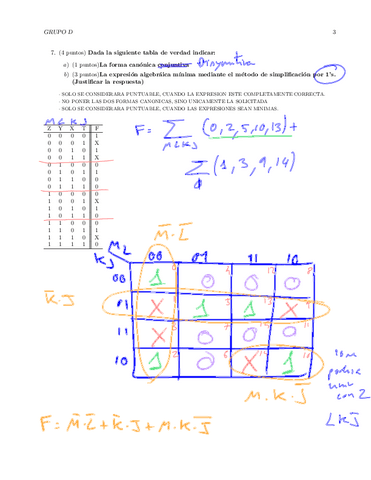 GRUPO D
3
7. (4 puntos) Dada la siguiente tabla de verdad indicar:
a) (1 puntos) La forma canónica conjuntiva Disyuntiva
b) (3 puntos) La expresión algebraica mínima mediante el método de simplificación por 1's.
(Justificar la respuesta)
· SOLO SE CONSIDERARA PUNTUABLE, CUANDO LA EXPRESION ESTE COMPLETAMENTE CORRECTA.
· NO PONER LAS DOS FORMAS CANONICAS, SINO UNICAMENTE LA SOLICITADA
· SOLO SE CONSIDERARA PUNTUABLE, CUANDO LAS EXPRESIONES SEAN MINIMAS.
M L K J
Z Y X T F
0 0 0 0 1
0 0 0 1 X
0 0 1 0 1
0 0 1 1 X
0 1 0 0 0
0 1 0 1 1
0 1 1 0 0
0 1 1 1 0
1 0 0 0 0
1 0 0 1 X
1 0 1 0 1
1 0 1 1 0
1 1 0 0 0
1 1 0 1 1
1 1 1 0 X
1 1 1 1 0
F = Σ (0, 2, 5, 10, 13) +
M L K J
Σ (1, 3, 9, 14)
M̄·L̄
ML
KJ
00 01 11 10
00 1 0 0 0
K̄·J
01 X 1 1 X
11 X 0 0 0
10 1 0 X 1
M·K·J̄
F = M̄·L̄ + K̄·J + M·K·J̄